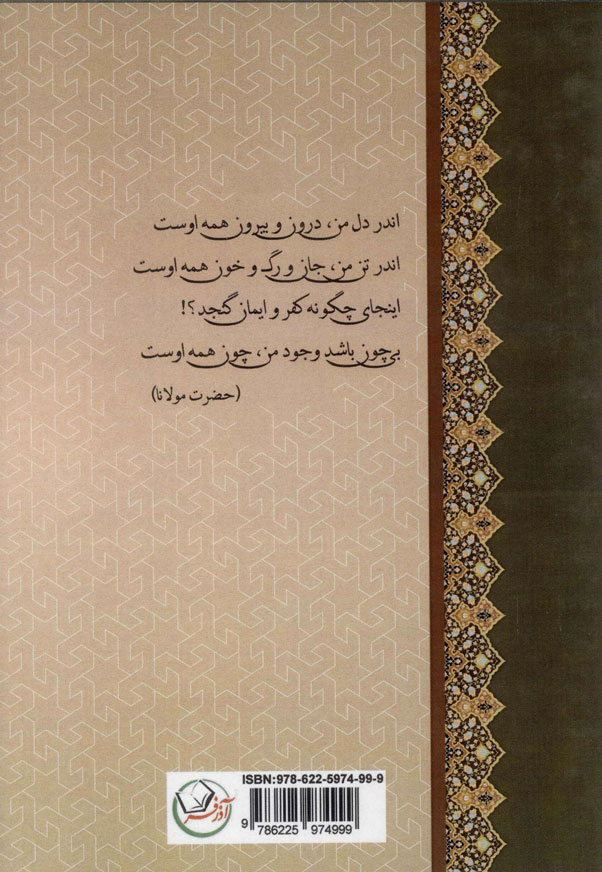 اندر دل من، درون و بیرون همه اوست
اندر تن من، جان و رگ و خون همه اوست
اینجای چگونه کفر و ایمان گنجد؟!
بی‌چون باشد وجود من، چون همه اوست
(حضرت مولانا)
ISBN:978-622-5974-99-9
آذرفر
9 786225 974999